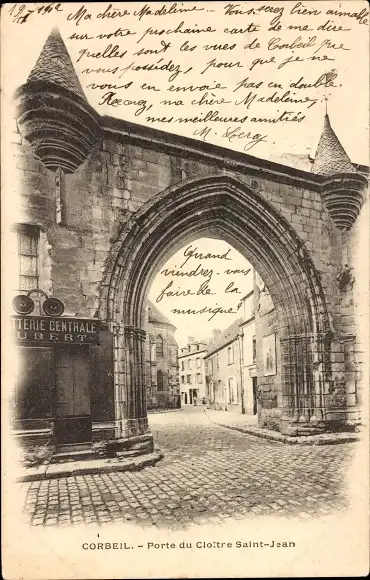 19/ 1902
Ma chère Madeleine, Vous serez bien aimable
sur votre prochaine carte de me dire
quelles sont les vues de Corbeil que
vous possédez, pour que je ne
vous en envoie pas en double.
Recevez, ma chère Madeleine,
mes meilleures amitiés
M.
Quand
viendrez-vous
faire de la
musique?
TTERIE CENTRALE
UBERT
CORBEIL. - Porte du Cloître Saint-Jean